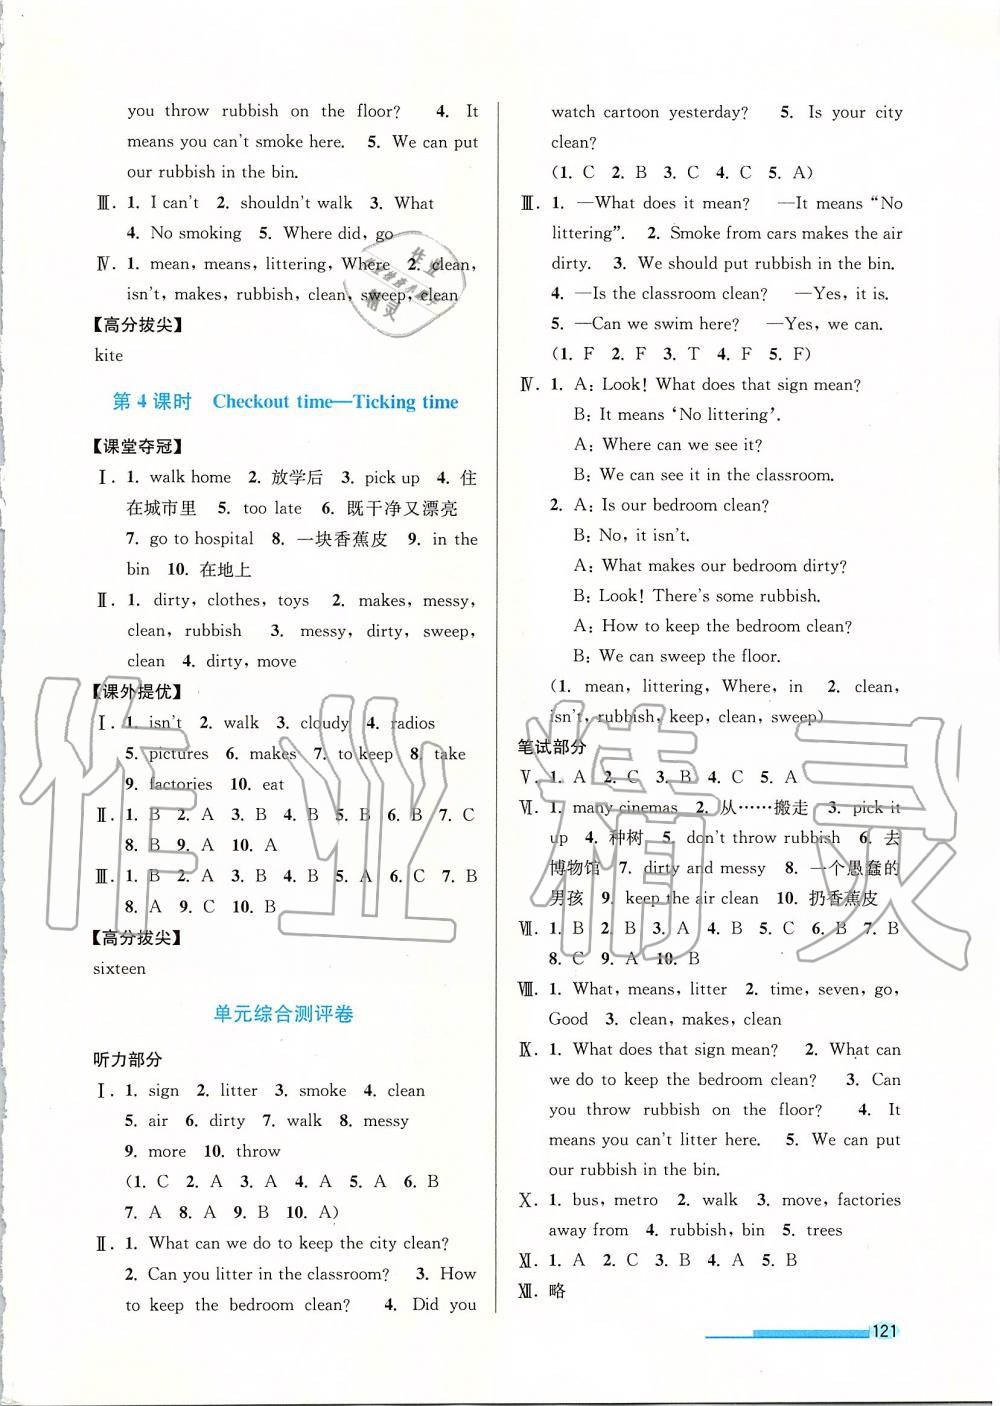 you throw rubbish on the floor? 4. It
means you can't smoke here. 5. We can put
our rubbish in the bin.
Ⅲ. 1. I can't 2. shouldn't walk 3. What
4. No smoking 5. Where did, go
Ⅳ. 1. mean, means, littering, Where 2. clean,
isn't, makes, rubbish, clean, sweep, clean
【高分拔尖】
kite
第 4 课时 Checkout time—Ticking time
【课堂夺冠】
Ⅰ. 1. walk home 2. 放学后 3. pick up 4. 住
在城市里 5. too late 6. 既干净又漂亮
7. go to hospital 8. 一块香蕉皮 9. in the
bin 10. 在地上
Ⅱ. 1. dirty, clothes, toys 2. makes, messy,
clean, rubbish 3. messy, dirty, sweep,
clean 4. dirty, move
【课外提优】
Ⅰ. 1. isn't 2. walk 3. cloudy 4. radios
5. pictures 6. makes 7. to keep 8. take
9. factories 10. eat
Ⅱ. 1. B 2. A 3. B 4. B 5. B 6. B 7. C
8. B 9. A 10. A
Ⅲ. 1. B 2. A 3. B 4. B 5. A 6. C 7. B
8. A 9. C 10. B
【高分拔尖】
sixteen
单元综合测评卷
听力部分
Ⅰ. 1. sign 2. litter 3. smoke 4. clean
5. air 6. dirty 7. walk 8. messy
9. more 10. throw
(1. C 2. A 3. A 4. A 5. A 6. B
7. A 8. A 9. B 10. A)
Ⅱ. 1. What can we do to keep the city clean?
2. Can you litter in the classroom? 3. How
to keep the bedroom clean? 4. Did you
watch cartoon yesterday? 5. Is your city
clean?
(1. C 2. B 3. C 4. C 5. A)
Ⅲ. 1. —What does it mean? —It means “No
littering”. 2. Smoke from cars makes the air
dirty. 3. We should put rubbish in the bin.
4. —Is the classroom clean? —Yes, it is.
5. —Can we swim here? —Yes, we can.
(1. F 2. F 3. T 4. F 5. F)
Ⅳ. 1. A: Look! What does that sign mean?
B: It means ‘No littering’.
A: Where can we see it?
B: We can see it in the classroom.
2. A: Is our bedroom clean?
B: No, it isn't.
A: What makes our bedroom dirty?
B: Look! There's some rubbish.
A: How to keep the bedroom clean?
B: We can sweep the floor.
(1. mean, littering, Where, in 2. clean,
isn't, rubbish, keep, clean, sweep)
笔试部分
Ⅴ. 1. A 2. C 3. B 4. C 5. A
Ⅵ. 1. many cinemas 2. 从……搬走 3. pick it
up 4. 种树 5. don't throw rubbish 6. 去
博物馆 7. dirty and messy 8. 一个愚蠢的
男孩 9. keep the air clean 10. 扔香蕉皮
Ⅶ. 1. B 2. B 3. A 4. B 5. C 6. B 7. B
8. C 9. A 10. B
Ⅷ. 1. What, means, litter 2. time, seven, go,
Good 3. clean, makes, clean
Ⅸ. 1. What does that sign mean? 2. What can
we do to keep the bedroom clean? 3. Can
you throw rubbish on the floor? 4. It
means you can't litter here. 5. We can put
our rubbish in the bin.
Ⅹ. 1. bus, metro 2. walk 3. move, factories
away from 4. rubbish, bin 5. trees
Ⅺ. 1. A 2. C 3. B 4. A 5. B
Ⅻ. 略
121
作业精灵